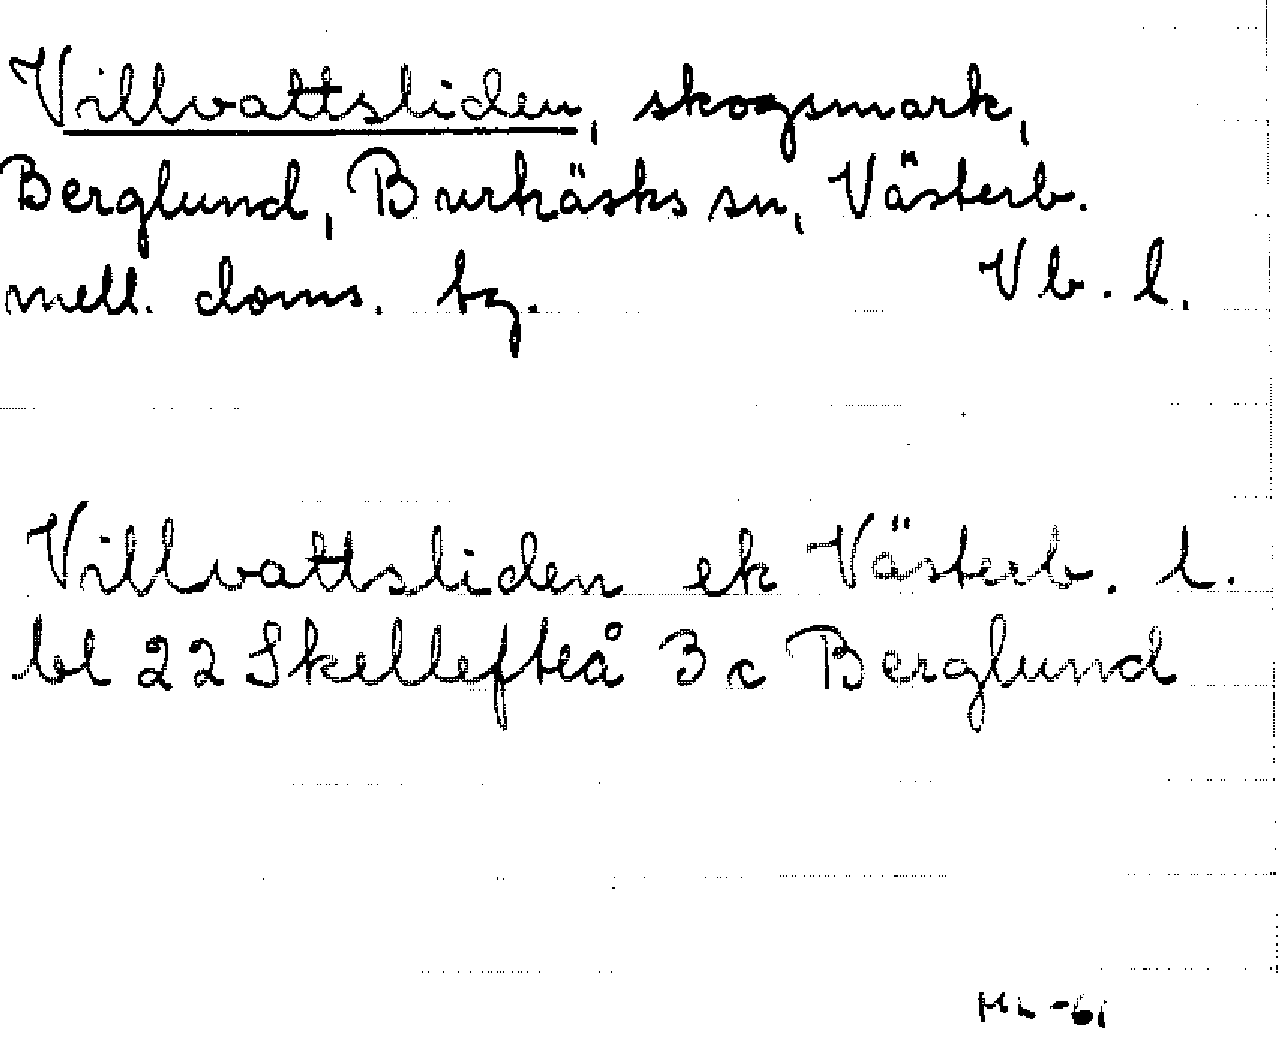 Villvattsliden, skogsmark,
Berglund, Burträsks sn, Västerb.
mell. doms. tg. Vb. l.
Villvattsliden ek Västerb. l.
bl 22 Skellefteå 3 c Berglund